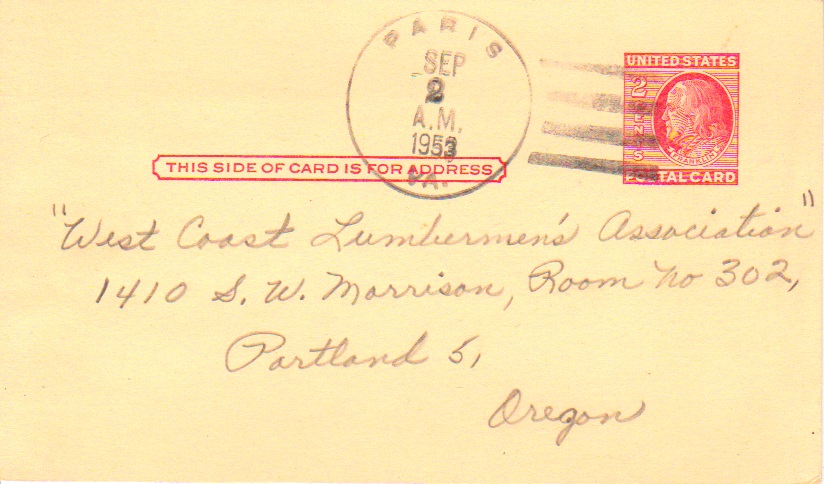 PARIS
SEP
2
A.M.
1953
VA.
UNITED STATES
2
CENTS
FRANKLIN
POSTAL CARD
THIS SIDE OF CARD IS FOR ADDRESS
"West Coast Lumbermen's Association"
1410 S. W. Morrison, Room No 302,
Portland 5,
Oregon